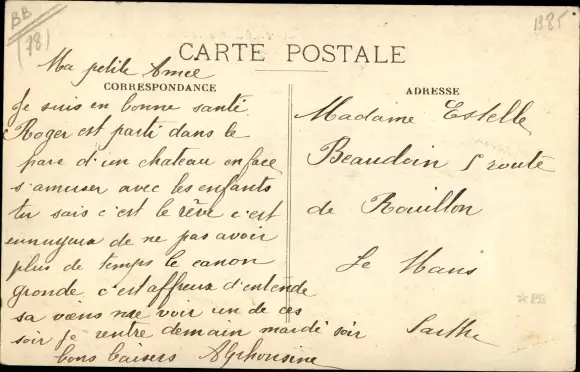 BB
(78)
1385
CARTE POSTALE
CORRESPONDANCE
Ma petite Amee
Je suis en bonne santé
Roger est parti dans le
parc d'un chateau en face
s'amuser avec les enfants
tu sais c'est le rêve c'est
ennuyeux de ne pas avoir
plus de temps le canon
gronde c'est affreux d'entende
sa viens me voir un de ces
soir je rentre demain mardi soir
bons baisers Alphonsine
ADRESSE
Madame Estelle
Beaudoin 5 route
de Rouillon
Le Mans
Sarthe